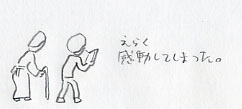 えらく
感動してしまった。